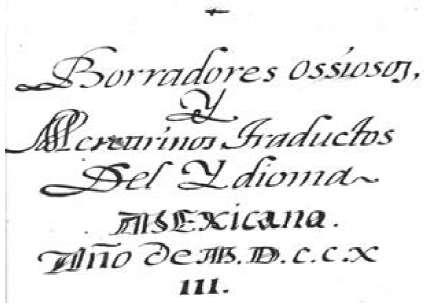 Borradores ossiosos,
Y
Mercurinos Traductos
Del Ydioma
MEXicana.
Año de M.D.C.C.X
III.